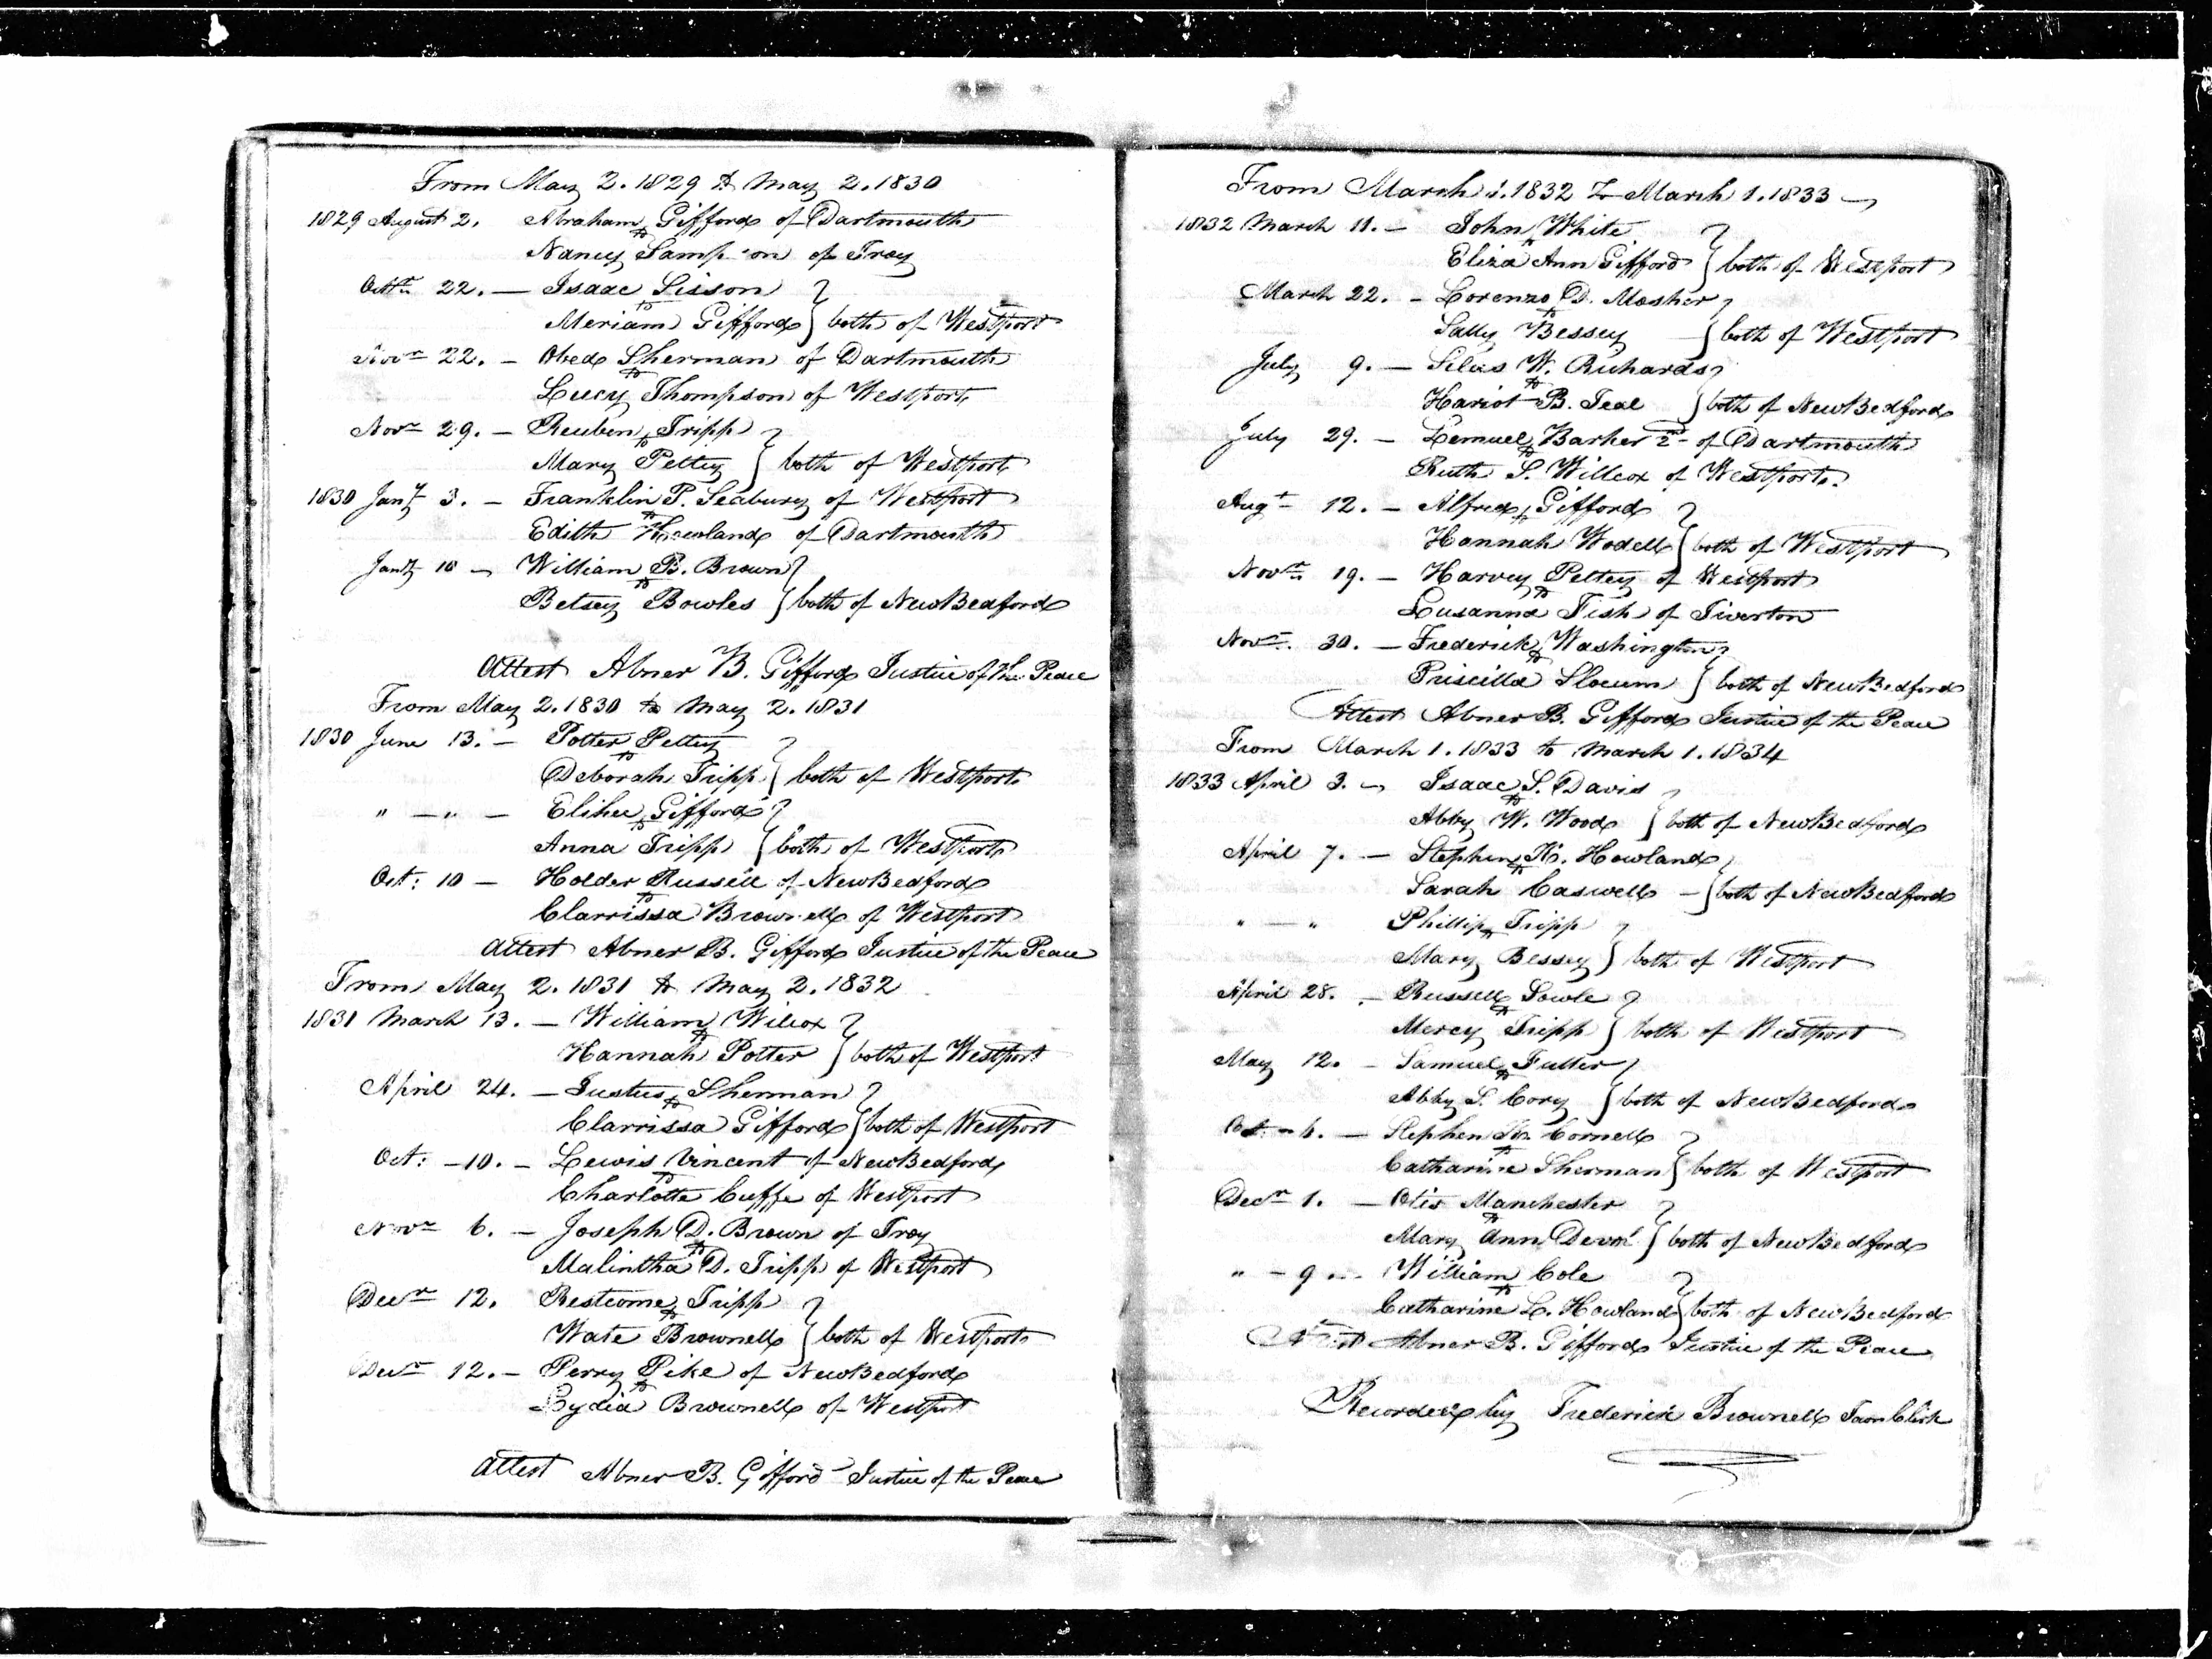 From May 2. 1829 to May 2. 1830
1829 August 2. Abraham Gifford of Dartmouth
to
Nancy Sampson of Troy
Octr 22. — Isaac Sisson
to
Meriam Gifford } both of Westport
Novr 22. — Obed Sherman of Dartmouth
to
Lucy Thompson of Westport
Novr 29. — Reuben Tripp
to
Mary Pettey } both of Westport
1830 Jany 3. — Franklin P. Seabury of Westport
to
Edith Howland of Dartmouth
Jany 10 — William B. Brown
to
Betsey Bowles } both of New Bedford
Attest Abner B. Gifford Justice of the Peace
From May 2. 1830 to May 2. 1831
1830 June 13. — Potter Pettey
to
Deborah Tripp } both of Westport
" — " — Elihu Gifford
to
Anna Tripp } both of Westport
Oct: 10 — Holder Russell of New Bedford
to
Clarrissa Brownell of Westport
Attest Abner B. Gifford Justice of the Peace
From May 2. 1831 to May 2. 1832
1831 March 13. — William Wilcox
to
Hannah Potter } both of Westport
April 24. — Justus Sherman
to
Clarrissa Gifford } both of Westport
Oct: — 10. — Lewis Vincent of New Bedford
to
Charlotte Cuffe of Westport
Novr 6. — Joseph D. Brown of Troy
to
Malintha D. Tripp of Westport
Decr 12. Restcome Tripp
to
Wate Brownell } both of Westport
Decr 12. — Perry Pike of New Bedford
to
Lydia Brownell of Westport
Attest Abner B. Gifford Justice of the Peace
From March 1. 1832 to March 1. 1833 —
1832 March 11. — John White
to
Eliza Ann Gifford } both of Westport
March 22. — Lorenzo D. Mosher
to
Sally Bessey } both of Westport
July 9. — Silas W. Richards
to
Hariot B. Teal } both of New Bedford
July 29. — Lemuel Barker 2nd of Dartmouth
to
Ruth S. Willcox of Westport.
Augt 12. — Alfred Gifford
to
Hannah Wodell } both of Westport
Novr 19. — Harvey Pettey of Westport
to
Susanna Fish of Tiverton
Novr 30. — Frederick Washington
to
Priscilla Slocum } both of New Bedford
Attest Abner B. Gifford Justice of the Peace
From March 1. 1833 to March 1. 1834
1833 April 3. — Isaac S. Davis
to
Abby W. Wood } both of New Bedford
April 7. — Stephen K. Howland
to
Sarah Caswell — } both of New Bedford
" — " Phillip Tripp
to
Mary Bessey } both of Westport
April 28. — Russell Sowle
to
Mercy Tripp } both of Westport
May 12. — Samuel Fuller
to
Abby S. Cory } both of New Bedford
Oct. — 6. — Stephen K. Cornell
to
Catharine Sherman } both of Westport
Decr 1. — Otis Manchester
to
Mary Ann Devol } both of New Bedford
" — 9 — William Cole
to
Catharine L. Howland } both of New Bedford
Attest Abner B. Gifford Justice of the Peace
Recorded by Frederick Brownell Town Clerk